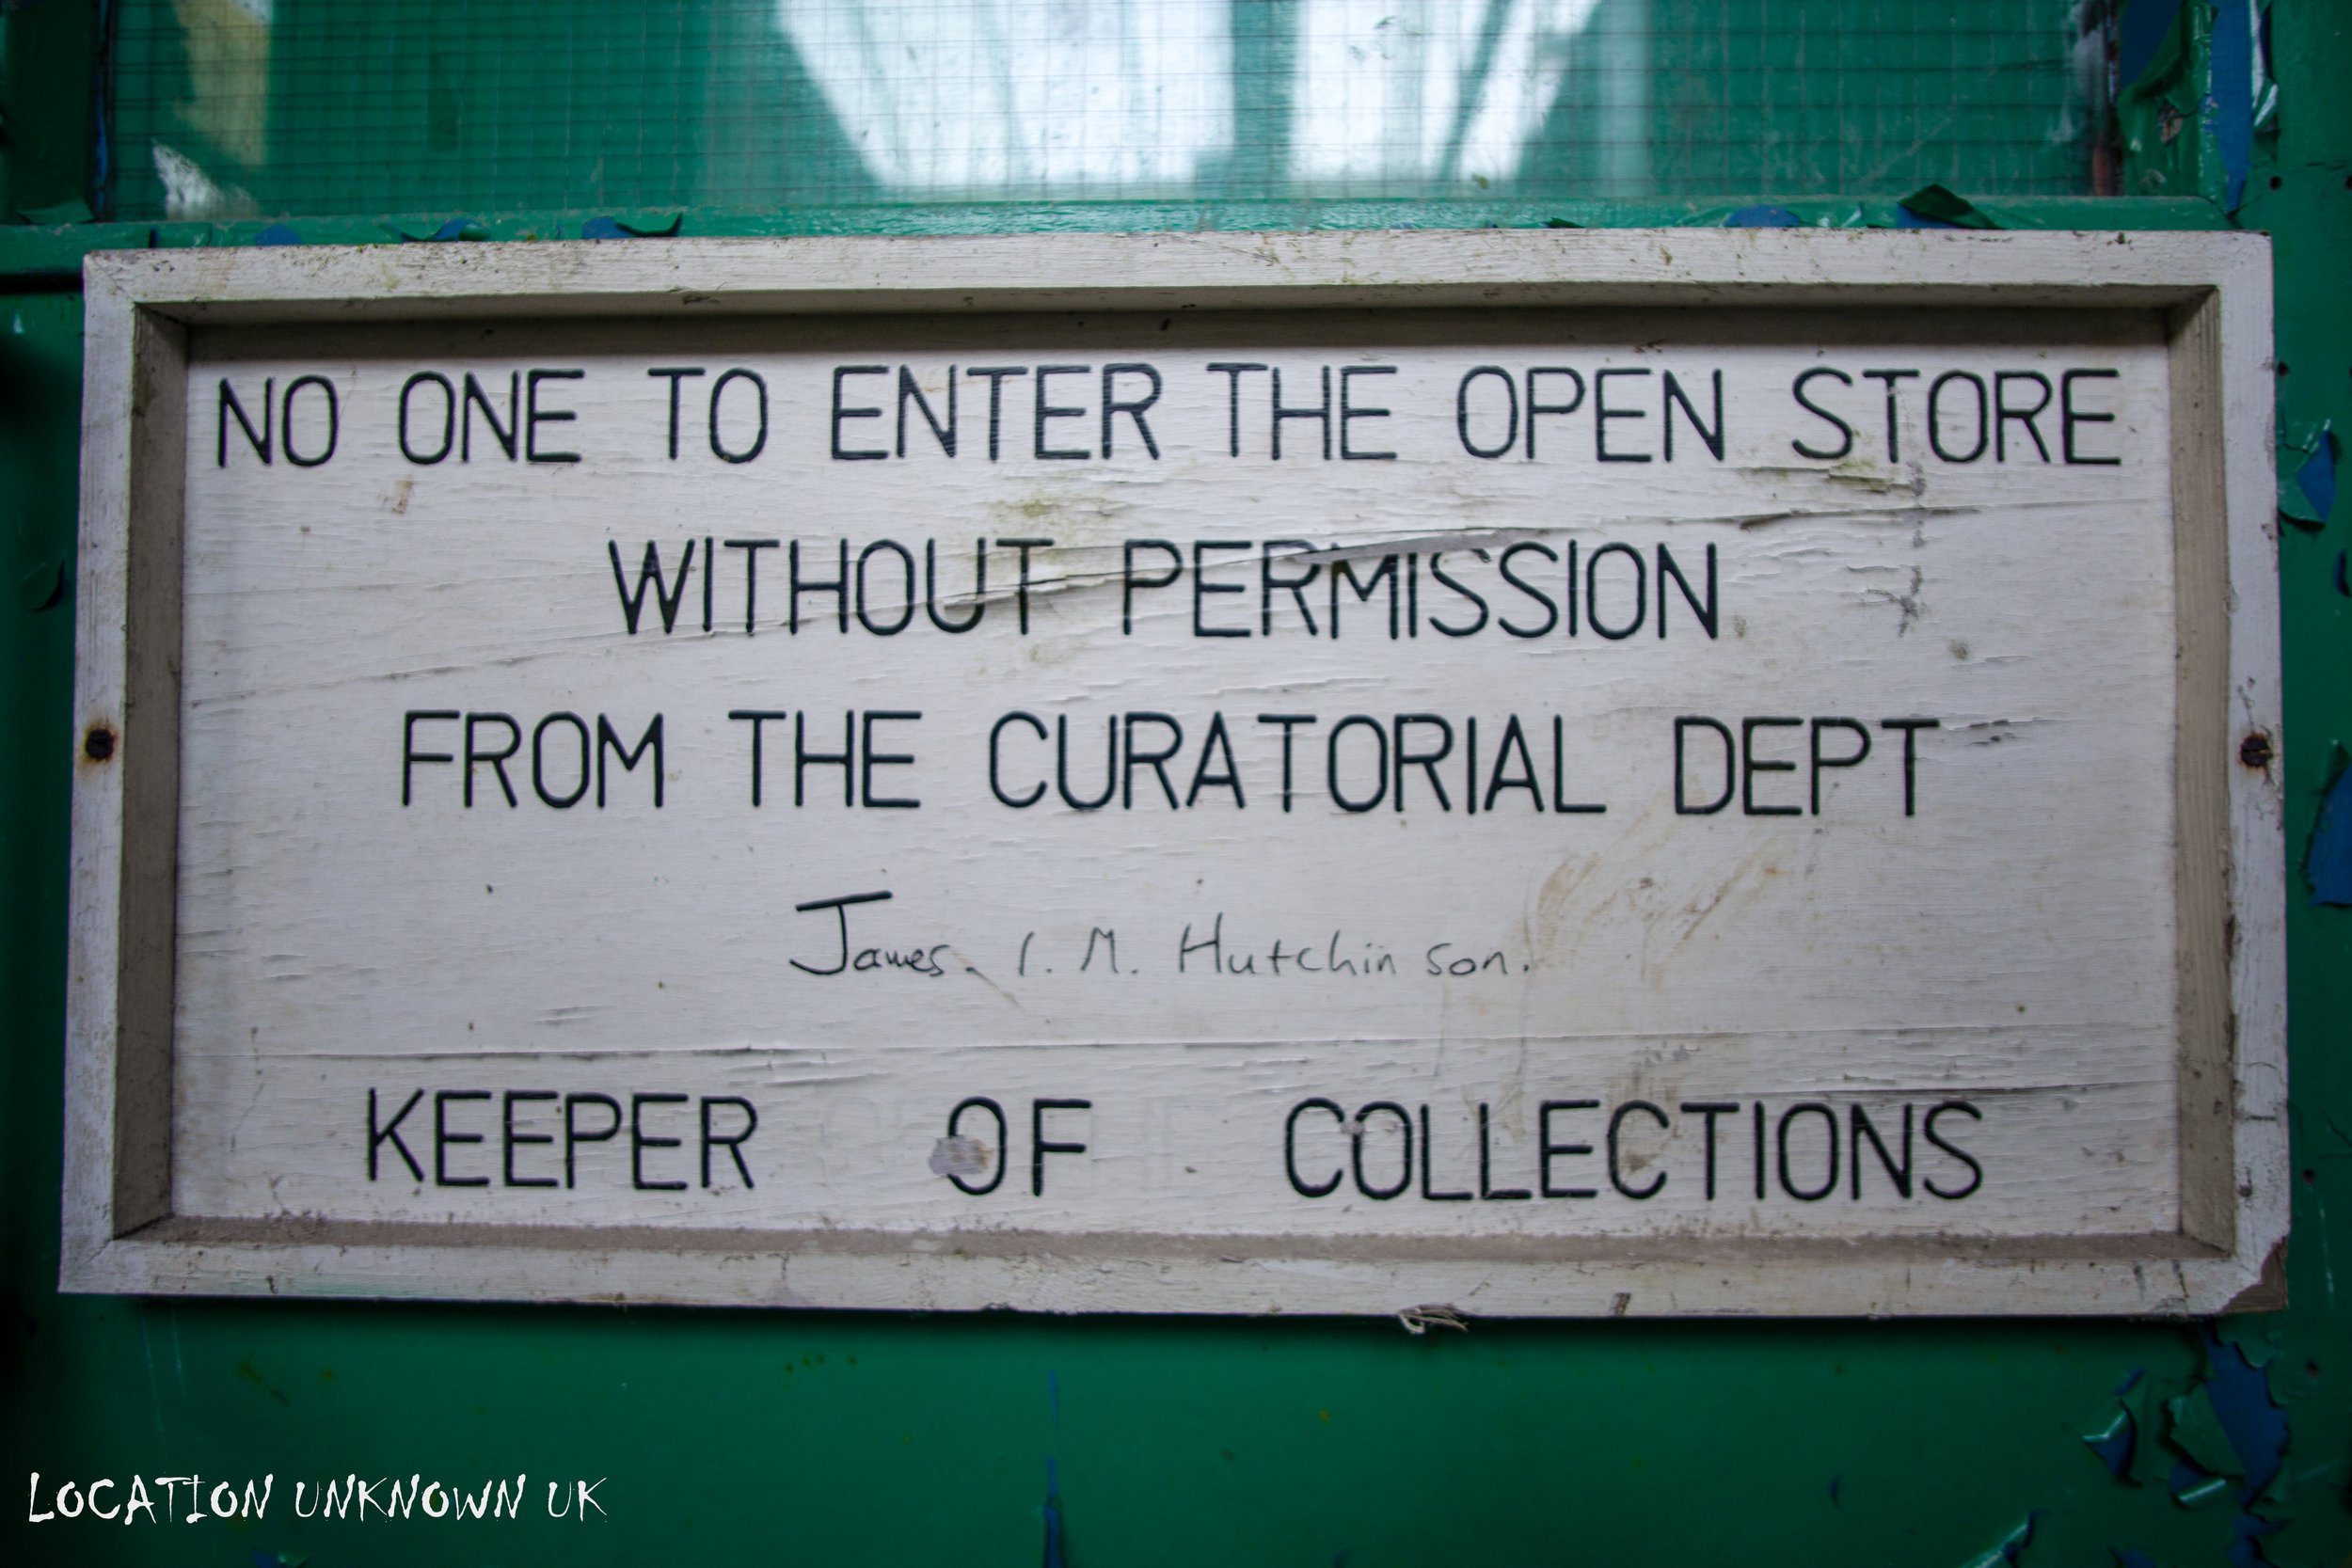 NO ONE TO ENTER THE OPEN STORE
WITHOUT PERMISSION
FROM THE CURATORIAL DEPT
James. I. M. Hutchinson.
KEEPER OF COLLECTIONS
LOCATION UNKNOWN UK